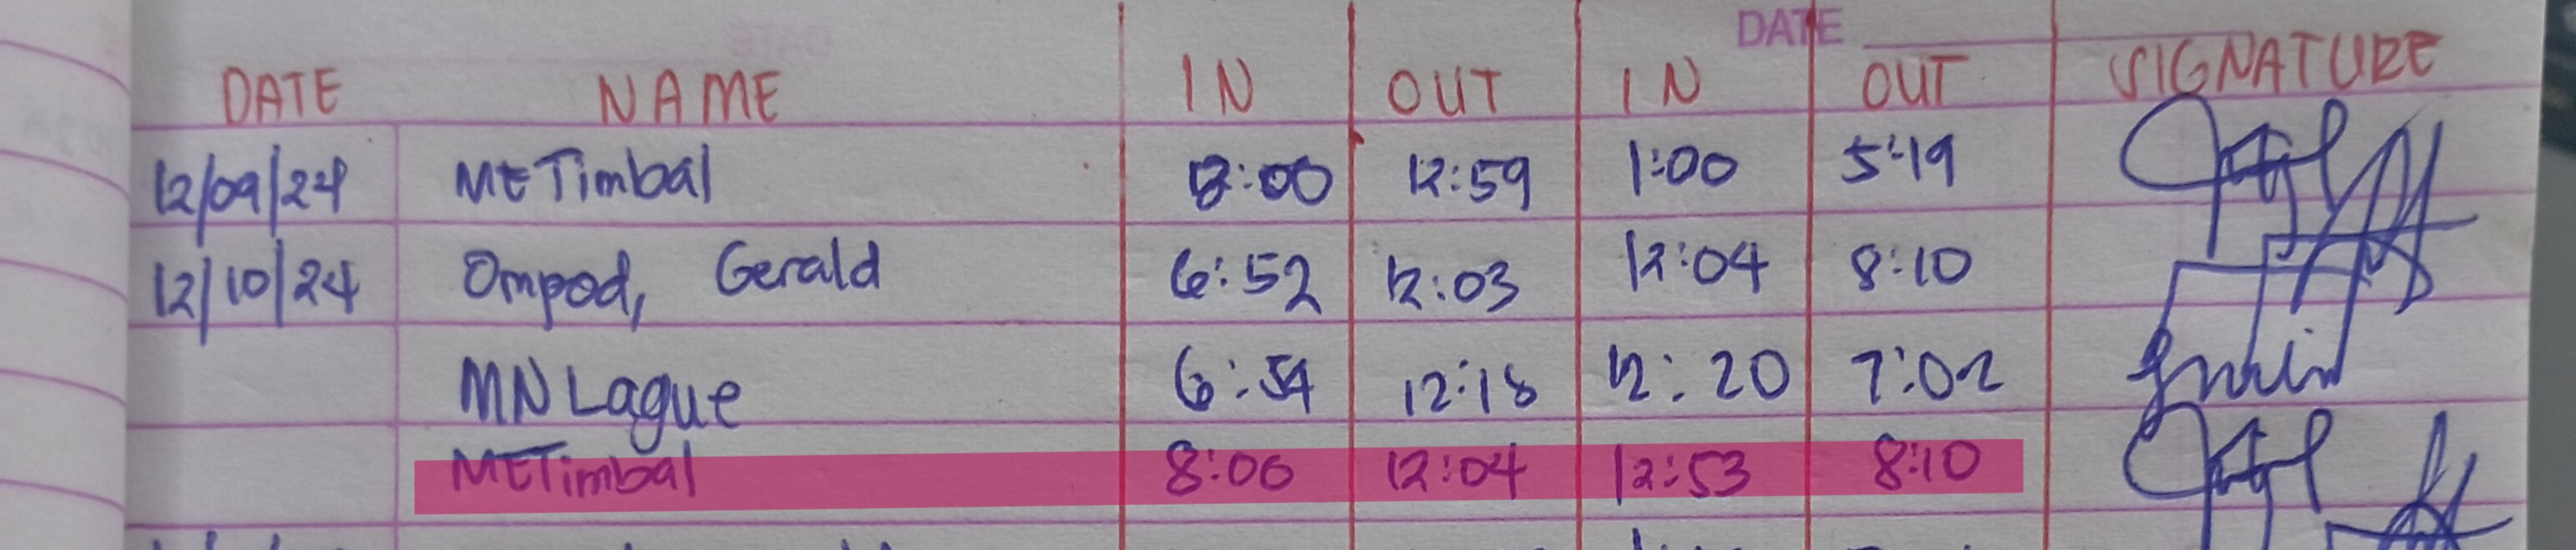 DATE
DATE NAME IN OUT IN OUT SIGNATURE
12/09/24 METimbal 8:00 12:59 1:00 5:19
12/10/24 Ompod, Gerald 6:52 12:03 12:04 8:10
MN Lague 6:54 12:18 12:20 7:02
METimbal 8:00 12:04 12:53 8:10